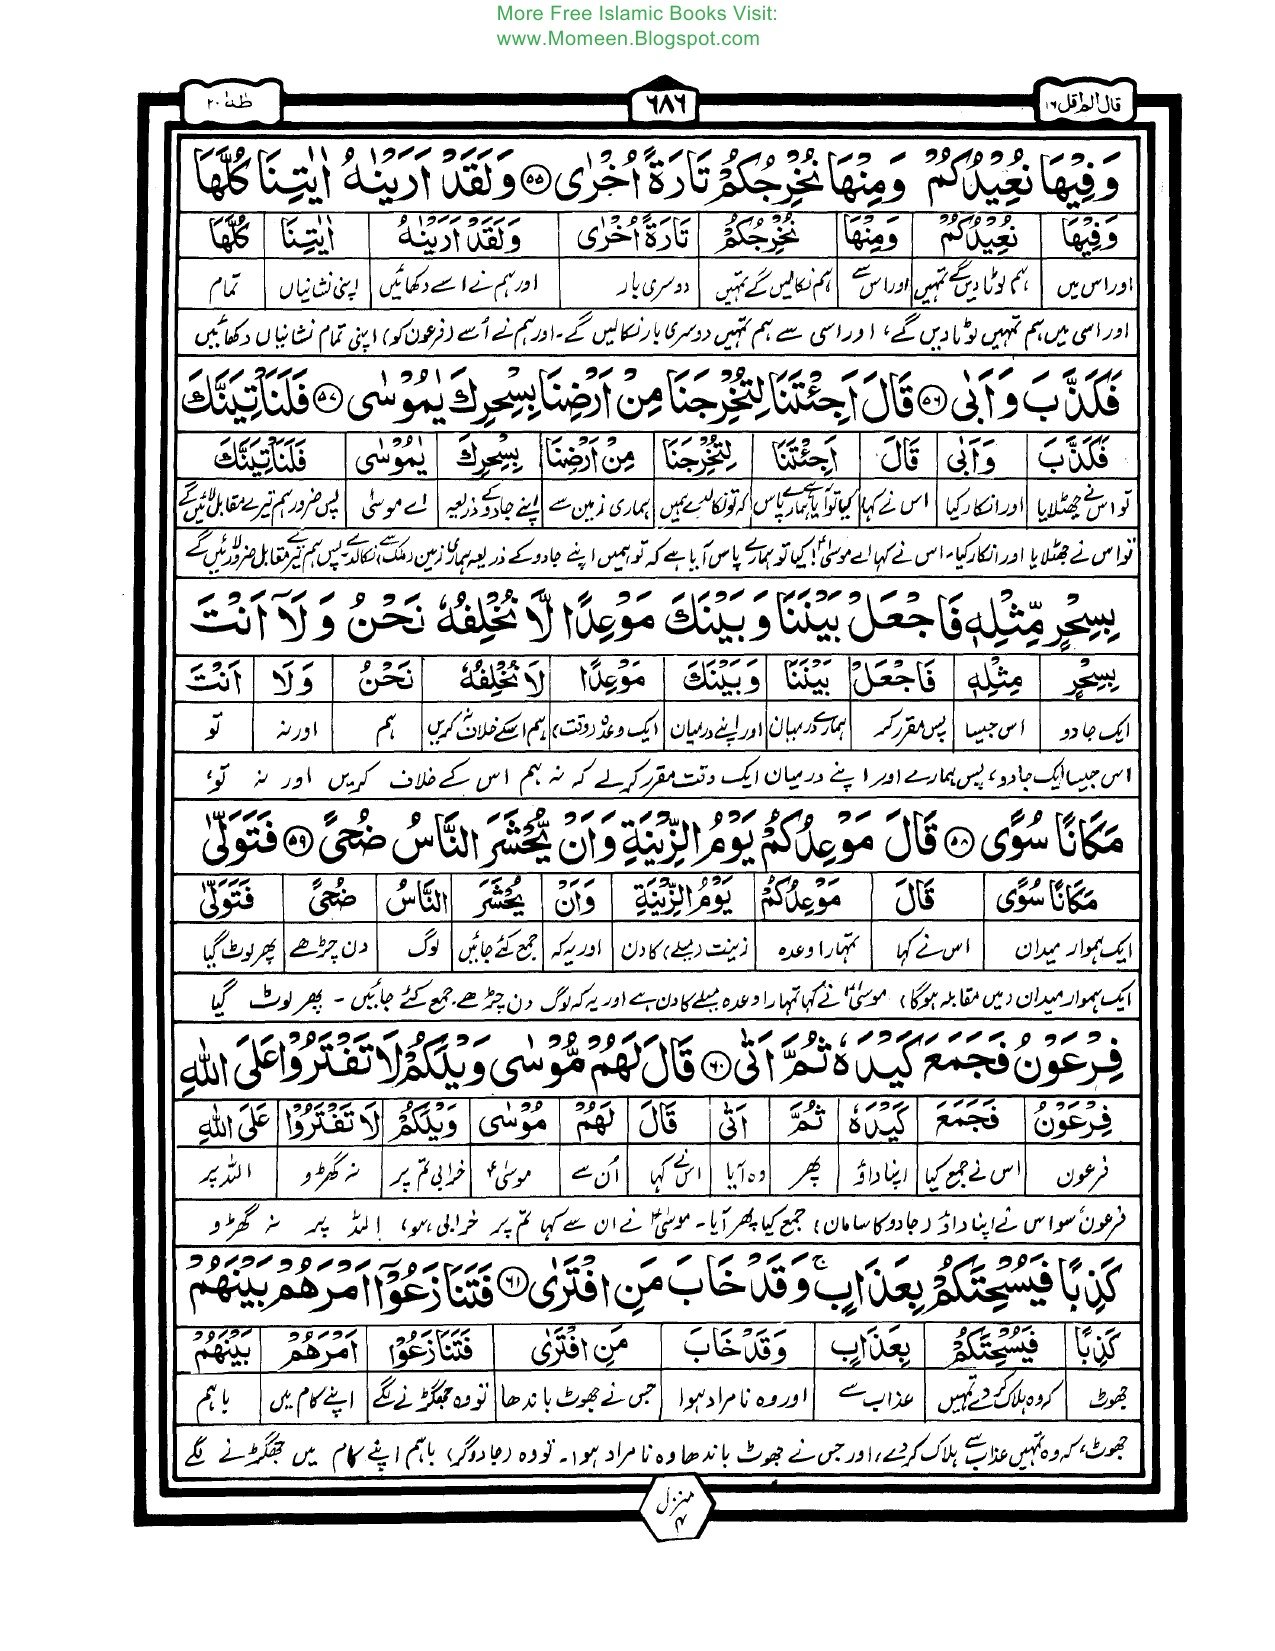 More Free Islamic Books Visit:
www.Momeen.Blogspot.com
قال الم اقل ١٦
٦٨٦
طٰهٰ ٢٠
وَفِيْهَا نُعِيْدُكُمْ وَمِنْهَا نُخْرِجُكُمْ تَارَةً اُخْرٰى ٥٥ وَلَقَدْ اَرَيْنٰهُ اٰيٰتِنَا كُلَّهَا
وَفِيْهَا نُعِيْدُكُمْ وَمِنْهَا نُخْرِجُكُمْ تَارَةً اُخْرٰى وَلَقَدْ اَرَيْنٰهُ اٰيٰتِنَا كُلَّهَا
اور اس میں ہم لوٹا دیں گے تمہیں اور اس سے ہم نکالیں گے تمہیں دوسری بار اور ہم نے اسے دکھائیں اپنی نشانیاں تمام
اور اسی میں ہم تمہیں لوٹا دیں گے، اور اسی سے ہم تمہیں دوسری بار نکالیں گے۔ اور ہم نے اُسے (فرعون کو) اپنی تمام نشانیاں دکھائیں
فَكَذَّبَ وَاَبٰى ٥٦ قَالَ اَجِئْتَنَا لِتُخْرِجَنَا مِنْ اَرْضِنَا بِسِحْرِكَ يٰمُوْسٰى ٥٧ فَلَنَاْتِيَنَّكَ
فَكَذَّبَ وَاَبٰى قَالَ اَجِئْتَنَا لِتُخْرِجَنَا مِنْ اَرْضِنَا بِسِحْرِكَ يٰمُوْسٰى فَلَنَاْتِيَنَّكَ
تو اس نے جھٹلایا اور انکار کیا اس نے کہا کیا تو آیا ہمارے پاس کہ تو نکالدے ہمیں ہماری زمین سے اپنے جادو کے ذریعہ اے موسیٰ پس ضرور ہم تیرے مقابل لائیں گے
تو اس نے جھٹلایا اور انکار کیا۔ اس نے کہا اے موسیٰؑ! کیا تو ہمارے پاس آیا ہے کہ تو ہمیں اپنے جادو کے ذریعہ ہماری زمین (ملک) سے نکالدے۔ پس ہم تیرے مقابل ضرور لائیں گے
بِسِحْرٍ مِّثْلِهٖ فَاجْعَلْ بَيْنَنَا وَبَيْنَكَ مَوْعِدًا لَّا نُخْلِفُهٗ نَحْنُ وَلَآ اَنْتَ
بِسِحْرٍ مِثْلِهٖ فَاجْعَلْ بَيْنَنَا وَبَيْنَكَ مَوْعِدًا لَا نُخْلِفُهٗ نَحْنُ وَلَا اَنْتَ
ایک جادو اس جیسا پس مقرر کر ہمارے درمیان اور اپنے درمیان ایک وعدہ (وقت) ہم اسکے خلاف نہ کریں ہم اور نہ تو
اس جیسا ایک جادو، پس ہمارے اور اپنے درمیان ایک وقت مقرر کرلے کہ نہ ہم اس کے خلاف کریں اور نہ تو،
مَكَانًا سُوًى ٥٨ قَالَ مَوْعِدُكُمْ يَوْمُ الزِّيْنَةِ وَاَنْ يُّحْشَرَ النَّاسُ ضُحًى ٥٩ فَتَوَلّٰى
مَكَانًا سُوًى قَالَ مَوْعِدُكُمْ يَوْمُ الزِّيْنَةِ وَاَنْ يُحْشَرَ النَّاسُ ضُحًى فَتَوَلّٰى
ایک ہموار میدان اس نے کہا تمہارا وعدہ زینت (میلے) کا دن اور یہ کہ جمع کئے جائیں لوگ دن چڑھے پھر لوٹ گیا
ایک ہموار میدان (میں مقابلہ ہوگا) موسیٰؑ نے کہا تمہارا وعدہ میلے کا دن ہے اور یہ کہ لوگ دن چڑھے جمع کئے جائیں۔ پھر لوٹ گیا
فِرْعَوْنُ فَجَمَعَ كَيْدَهٗ ثُمَّ اَتٰى ٦٠ قَالَ لَهُمْ مُّوْسٰى وَيْلَكُمْ لَا تَفْتَرُوْا عَلَى اللّٰهِ
فِرْعَوْنُ فَجَمَعَ كَيْدَهٗ ثُمَّ اَتٰى قَالَ لَهُمْ مُوْسٰى وَيْلَكُمْ لَا تَفْتَرُوْا عَلَى اللّٰهِ
فرعون اس نے جمع کیا اپنا داؤ پھر وہ آیا اس نے کہا اُن سے موسیٰؑ خرابی تم پر نہ گھڑو اللہ پر
فرعون، سو اس نے اپنا داؤ (جادو کا سامان) جمع کیا پھر آیا۔ موسیٰؑ نے ان سے کہا تم پر خرابی ہو، اللہ پر نہ گھڑو
كَذِبًا فَيُسْحِتَكُمْ بِعَذَابٍ ۚ وَقَدْ خَابَ مَنِ افْتَرٰى ٦١ فَتَنَازَعُوْٓا اَمْرَهُمْ بَيْنَهُمْ
كَذِبًا فَيُسْحِتَكُمْ بِعَذَابٍ وَقَدْ خَابَ مَنِ افْتَرٰى فَتَنَازَعُوْا اَمْرَهُمْ بَيْنَهُمْ
جھوٹ کہ وہ ہلاک کر دے تمہیں عذاب سے اور وہ نامراد ہوا جس نے جھوٹ باندھا تو وہ جھگڑنے لگے اپنے کام میں باہم
جھوٹ، کہ وہ تمہیں عذاب سے ہلاک کردے، اور جس نے جھوٹ باندھا وہ نامراد ہوا۔ تو وہ (جادوگر) باہم اپنے کام میں جھگڑنے لگے
منزل ۴